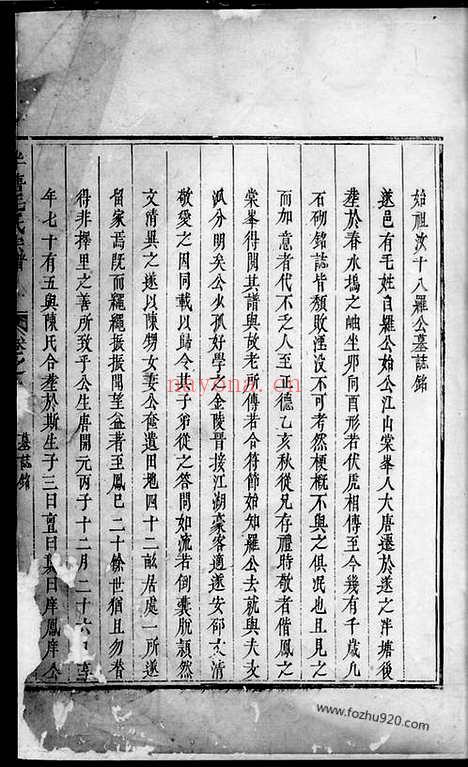 始祖汝十八羅公墓誌銘
遂邑有毛姓自羅公始公江山棠峯人大唐遷於遂之泮塘後
塟於春水塢之岫坐卯向酉形若伏虎相傳至今幾有千歲凡
石砌銘誌皆頹敗湮沒不可考然梗概不與之俱泯也且見之
而如意者代不乏人至正德乙亥秋從兄存禮時敬者偕鳳之
棠峯得閱其譜與故老所傳若合符節始知羅公去就與夫女
派分明矣公少孤好學之金陵晋接江湖豪客適遂安邵文清
敬愛之因同載以歸令其子弟從之答問如流若倒囊脫穎然
文清異之遂以陳甥女妻公俺遺田地四十二畝居處一所遂
留家焉既而繩繩振振聞望益著至鳳已二十餘世猶且勿替
得非擇里之善所致乎公生唐開元丙子十二月二十六日享
年七十有五與陳氏合塟於斯生子三曰亶曰其曰岸鳳岸公
毛氏宗譜
卷之
墓誌銘
nayona.cn
www.fozhu920.com